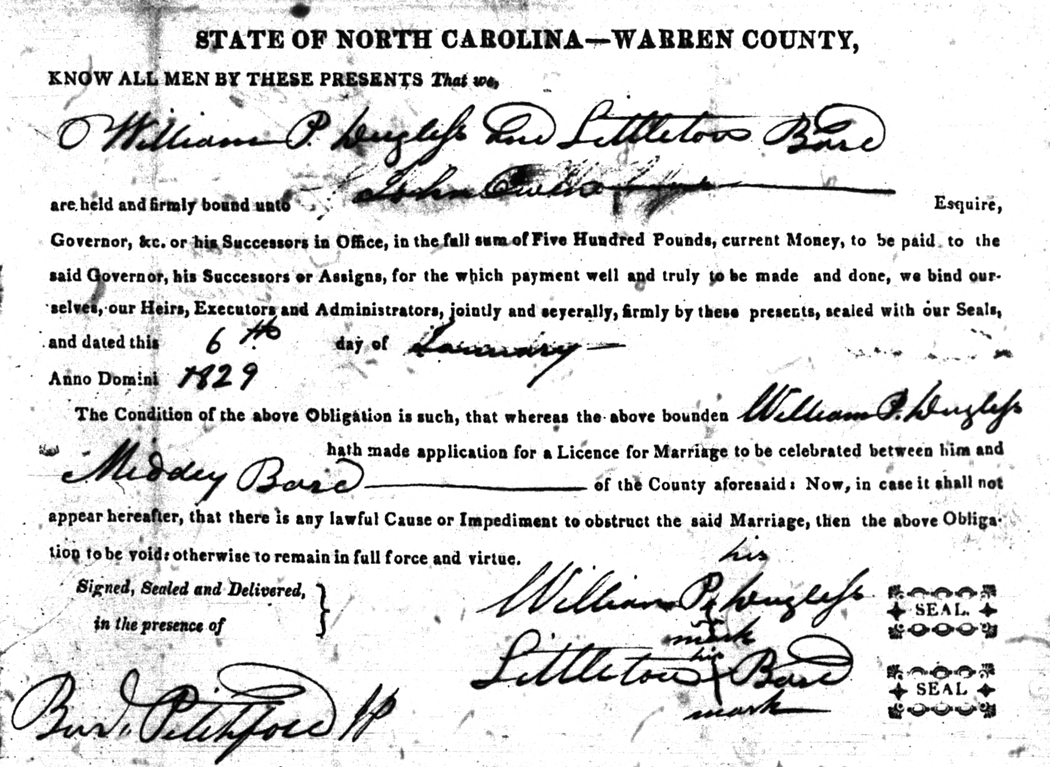 STATE OF NORTH CAROLINA—WARREN COUNTY,
KNOW ALL MEN BY THESE PRESENTS That we,
William P. Duglass and Littleton Bard
are held and firmly bound unto John Owen Esquire,
Governor, &c. or his Successors in Office, in the full sum of Five Hundred Pounds, current Money, to be paid to the
said Governor, his Successors or Assigns, for the which payment well and truly to be made and done, we bind our-
selves, our Heirs, Executors and Administrators, jointly and severally, firmly by these presents, sealed with our Seals,
and dated this 6th day of January
Anno Domini 1829
The Condition of the above Obligation is such, that whereas the above bounden William P. Duglass
hath made application for a Licence for Marriage to be celebrated between him and
Middey Bard of the County aforesaid: Now, in case it shall not
appear hereafter, that there is any lawful Cause or Impediment to obstruct the said Marriage, then the above Obliga-
tion to be void: otherwise to remain in full force and virtue.
Signed, Sealed and Delivered,
in the presence of
his
William P. Duglass SEAL.
mark
his
Littleton Bard SEAL
mark